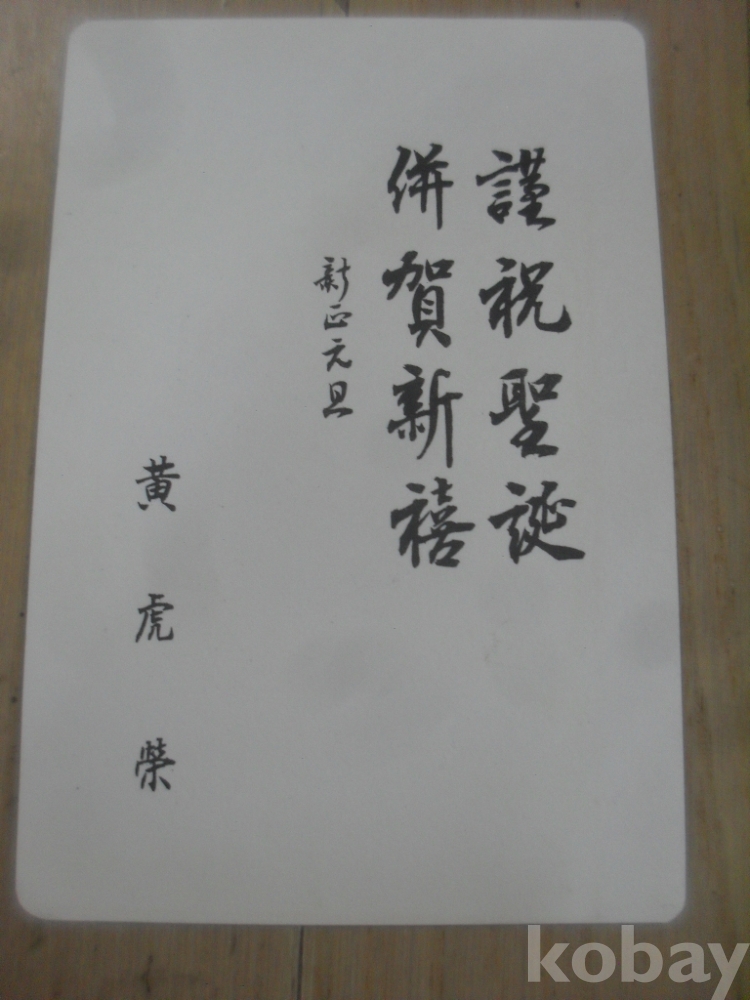 謹祝聖誕
併賀新禧
新正元旦
黃虎榮
kobay